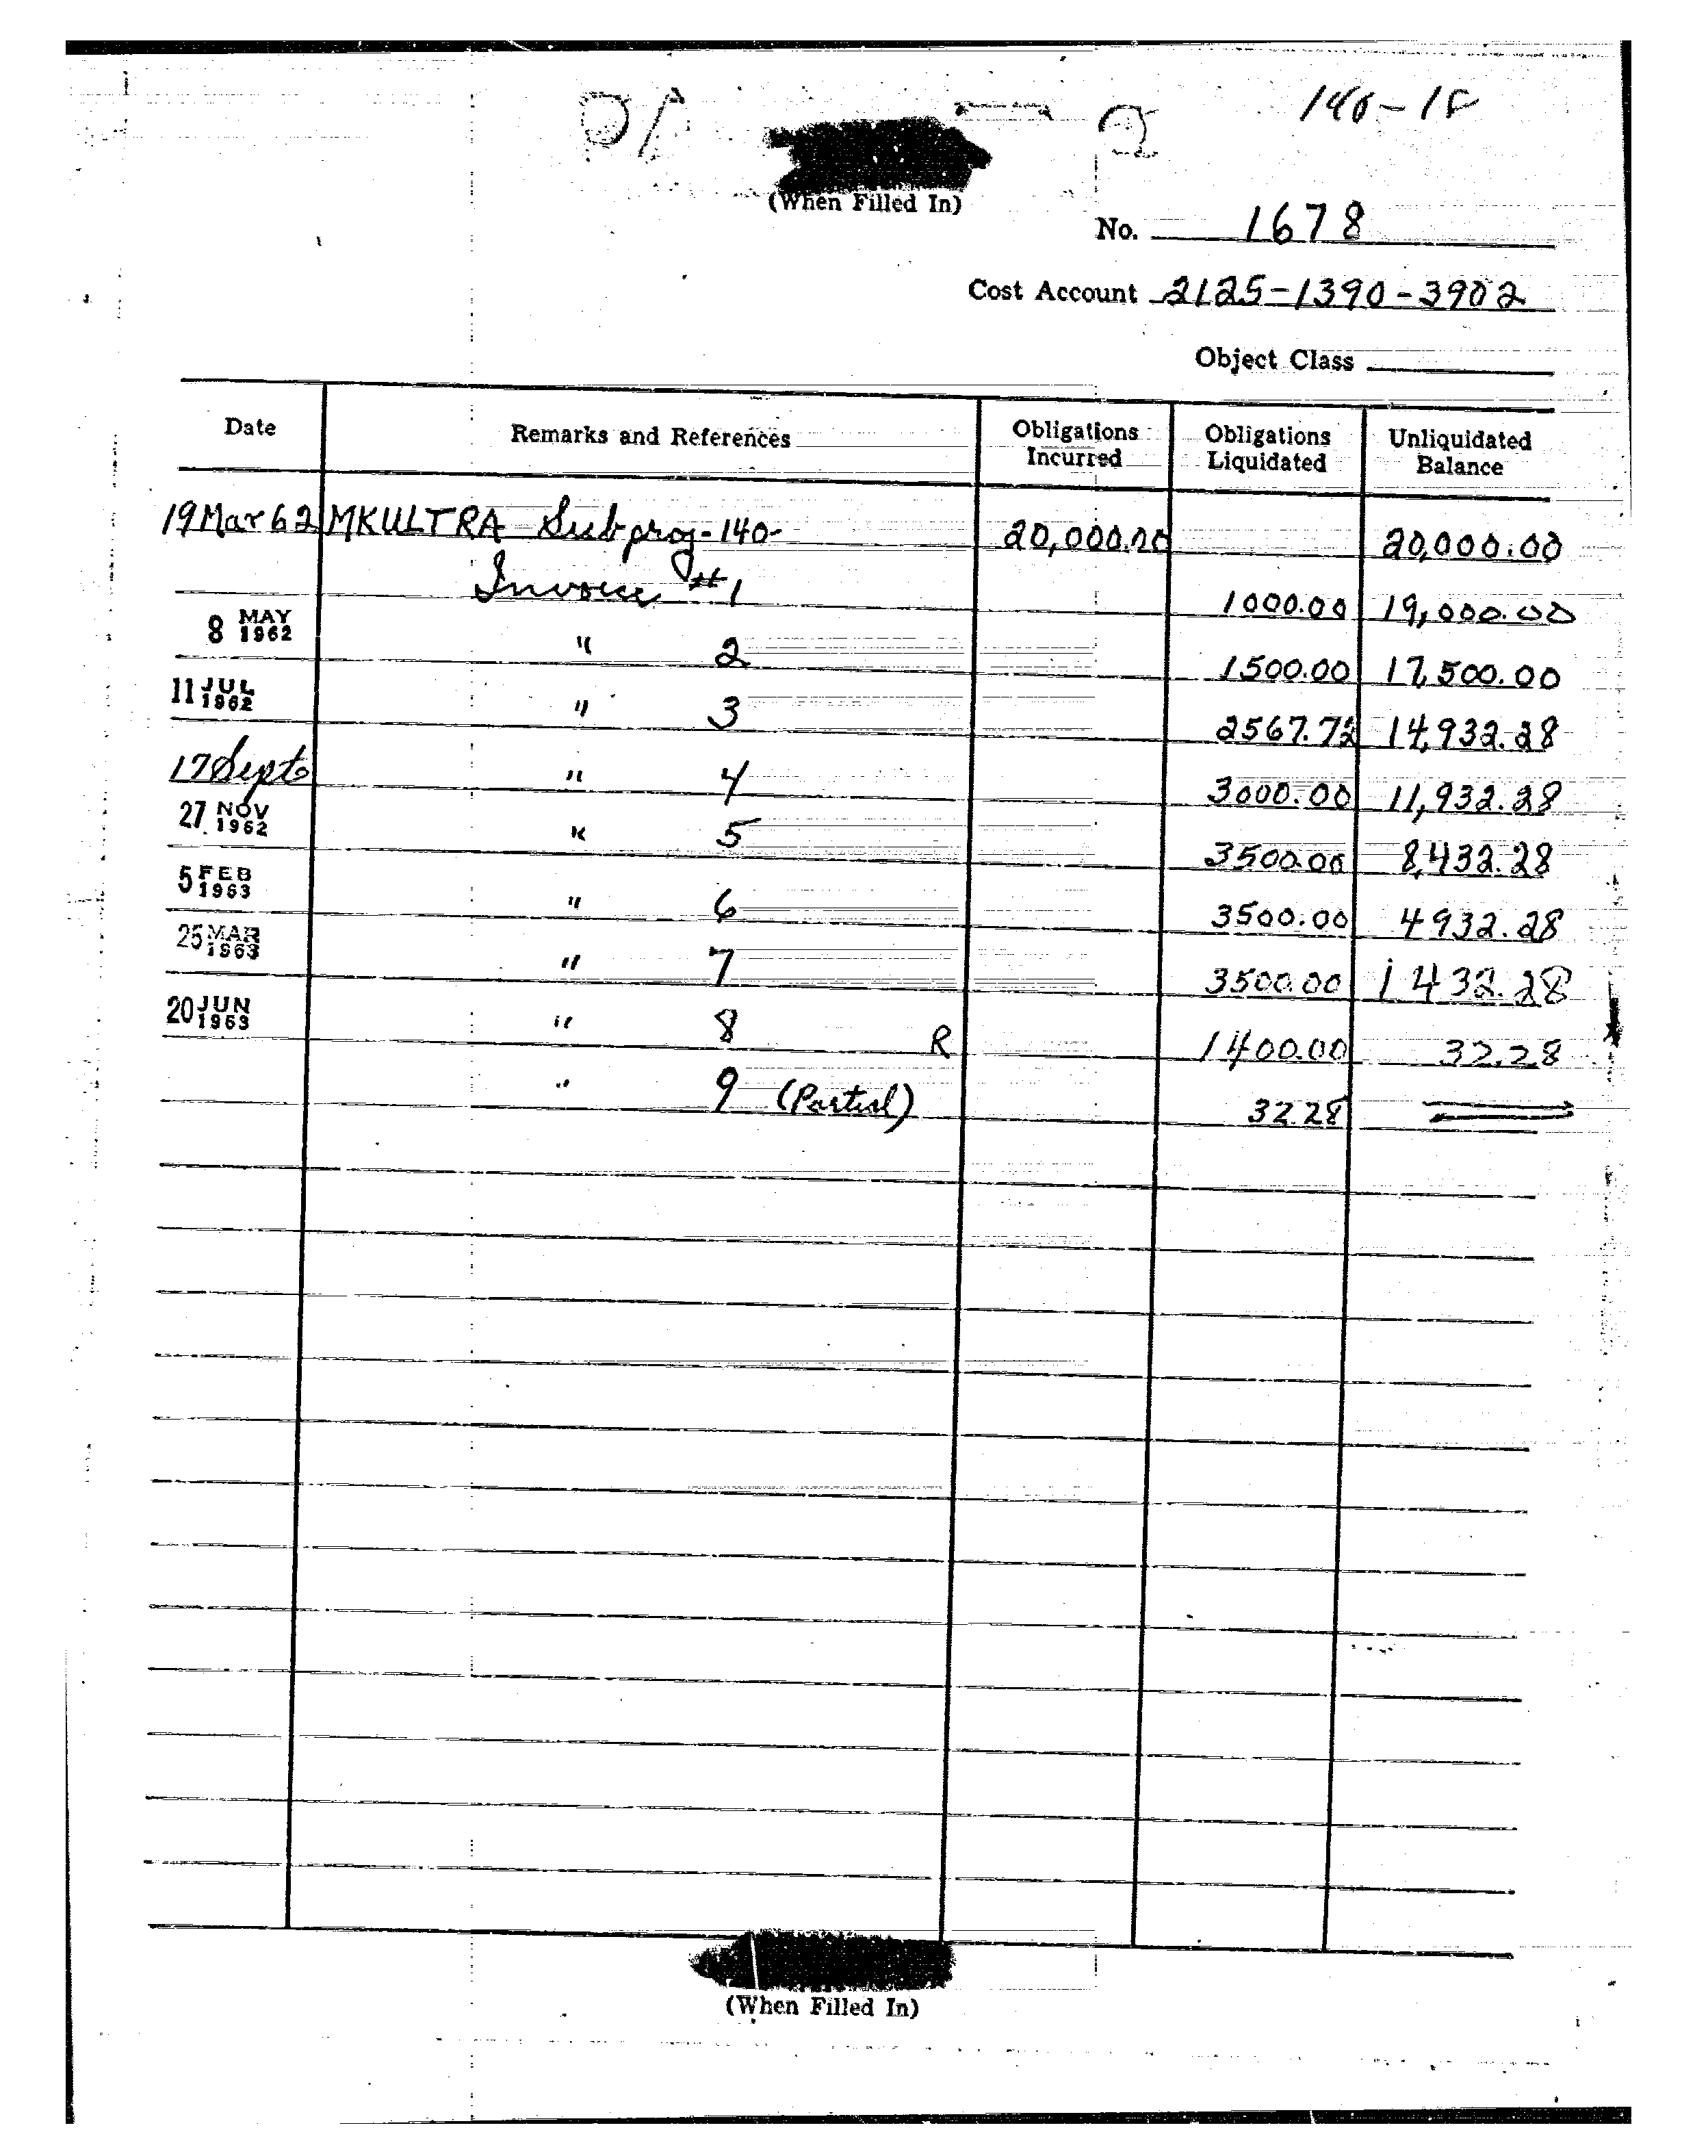 (When Filled In)
No. 1678
Cost Account 2125-1390-3902
Object Class
Date Remarks and References Obligations Incurred Obligations Liquidated Unliquidated Balance
19 Mar 62 MKULTRA Subproj-140- 20,000.00 20,000.00
Invoice #1 1000.00 19,000.00
8 MAY 1962 " 2 1500.00 17,500.00
11 JUL 1962 " 3 2567.72 14,932.28
17 Sept " 4 3000.00 11,932.28
27 NOV 1962 " 5 3500.00 8,432.28
5 FEB 1963 " 6 3500.00 4932.28
25 MAR 1963 " 7 3500.00 1432.28
20 JUN 1963 " 8 R 1400.00 32.28
" 9 (Partial) 32.28
(When Filled In)